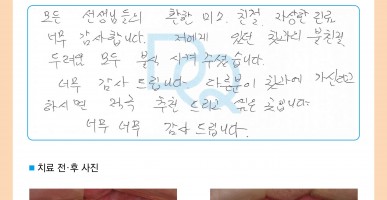 모든 선생님들의 환한 미소, 친절, 자상한 진료
너무 감사합니다. 저에게 있던 치과의 불친절
두려움 모두 불식 시켜 주셨습니다.
너무 감사 드립니다 다른분이 치과에 가신다고
하시면 적극 추천 드리고 싶은 곳입니다.
너무 너무 감사 드립니다.
■ 치료 전·후 사진